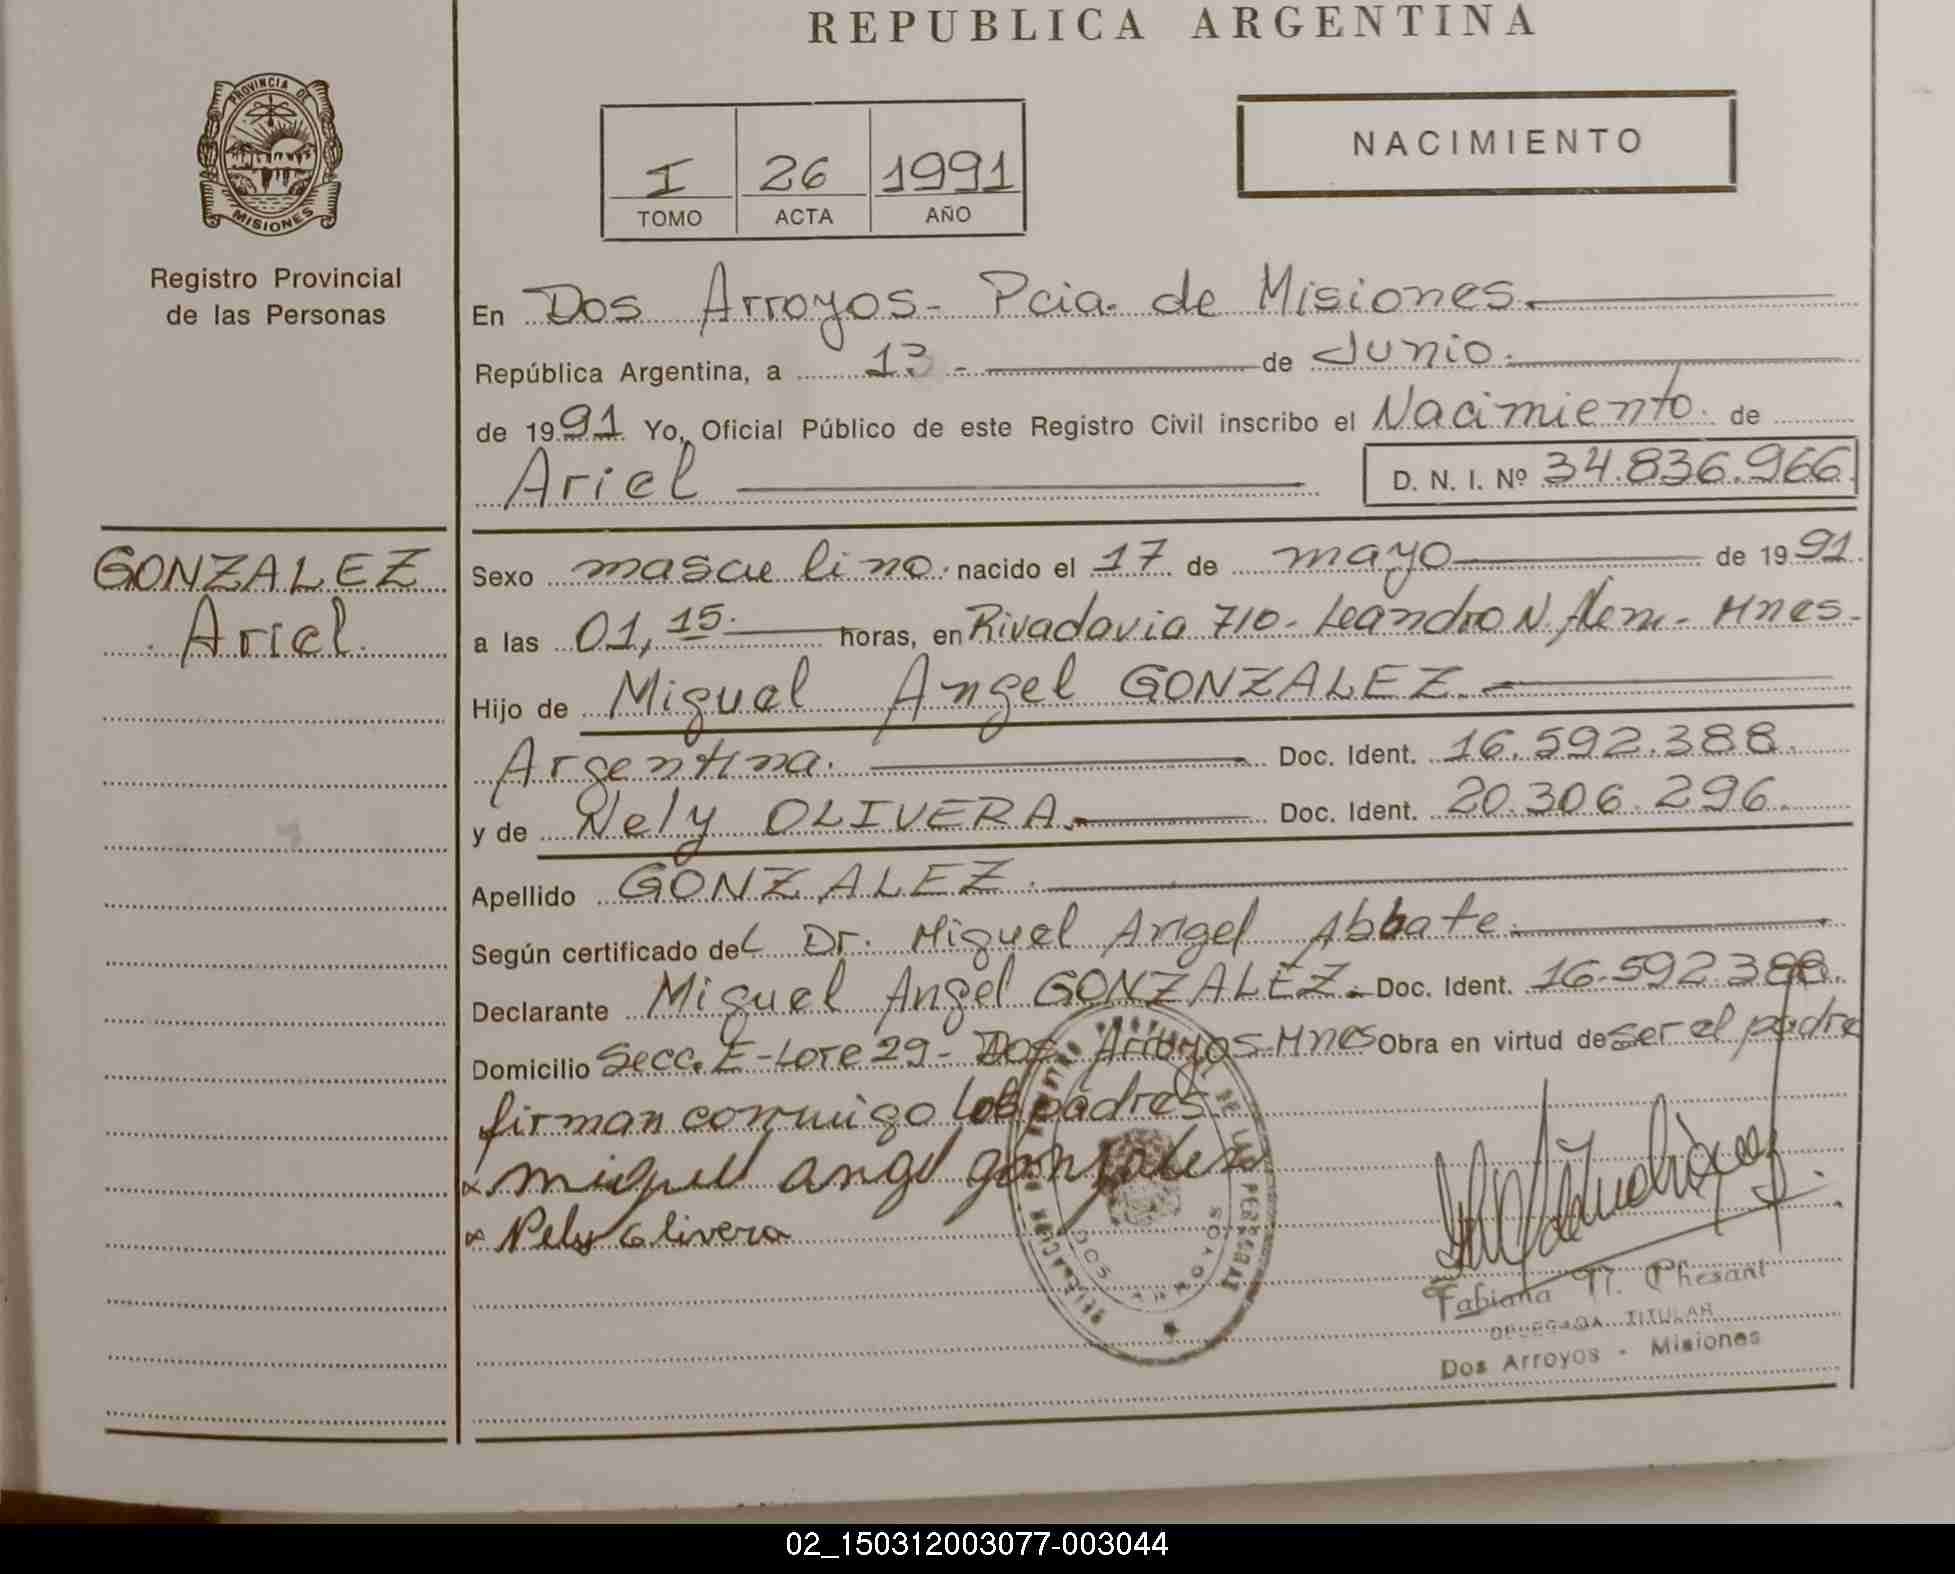 REPUBLICA ARGENTINA
PROVINCIA DE
MISIONES
Registro Provincial
de las Personas
I 26 1991
TOMO ACTA AÑO
NACIMIENTO
En Dos Arroyos- Pcia. de Misiones.
República Argentina, a 13 - de Junio.
de 1991. Yo, Oficial Público de este Registro Civil inscribo el Nacimiento. de
Ariel D. N. I. Nº 34.836.966
GONZALEZ
Ariel.
Sexo masculino. nacido el 17 de mayo de 1991.
a las 01,15. horas, en Rivadavia 710- Leandro N. Alem- Mnes.
Hijo de Miguel Angel GONZALEZ.
Argentina. Doc. Ident. 16.592.388.
y de Nely OLIVERA. Doc. Ident. 20.306.296.
Apellido GONZALEZ.
Según certificado del Dr. Miguel Angel Abbate.
Declarante Miguel Angel GONZALEZ. Doc. Ident. 16.592.388.
Domicilio Secc. E-Lote 29- Dos Arroyos-Mnes Obra en virtud de ser el padre
firman conmigo los padres.
x miguel angel gonzalez
x Nely Olivera
DELEGACION DE LAS PERSONAS
DOS ARROYOS
Fabiana M. Chesani
DELEGADA TITULAR
Dos Arroyos - Misiones
02_150312003077-003044